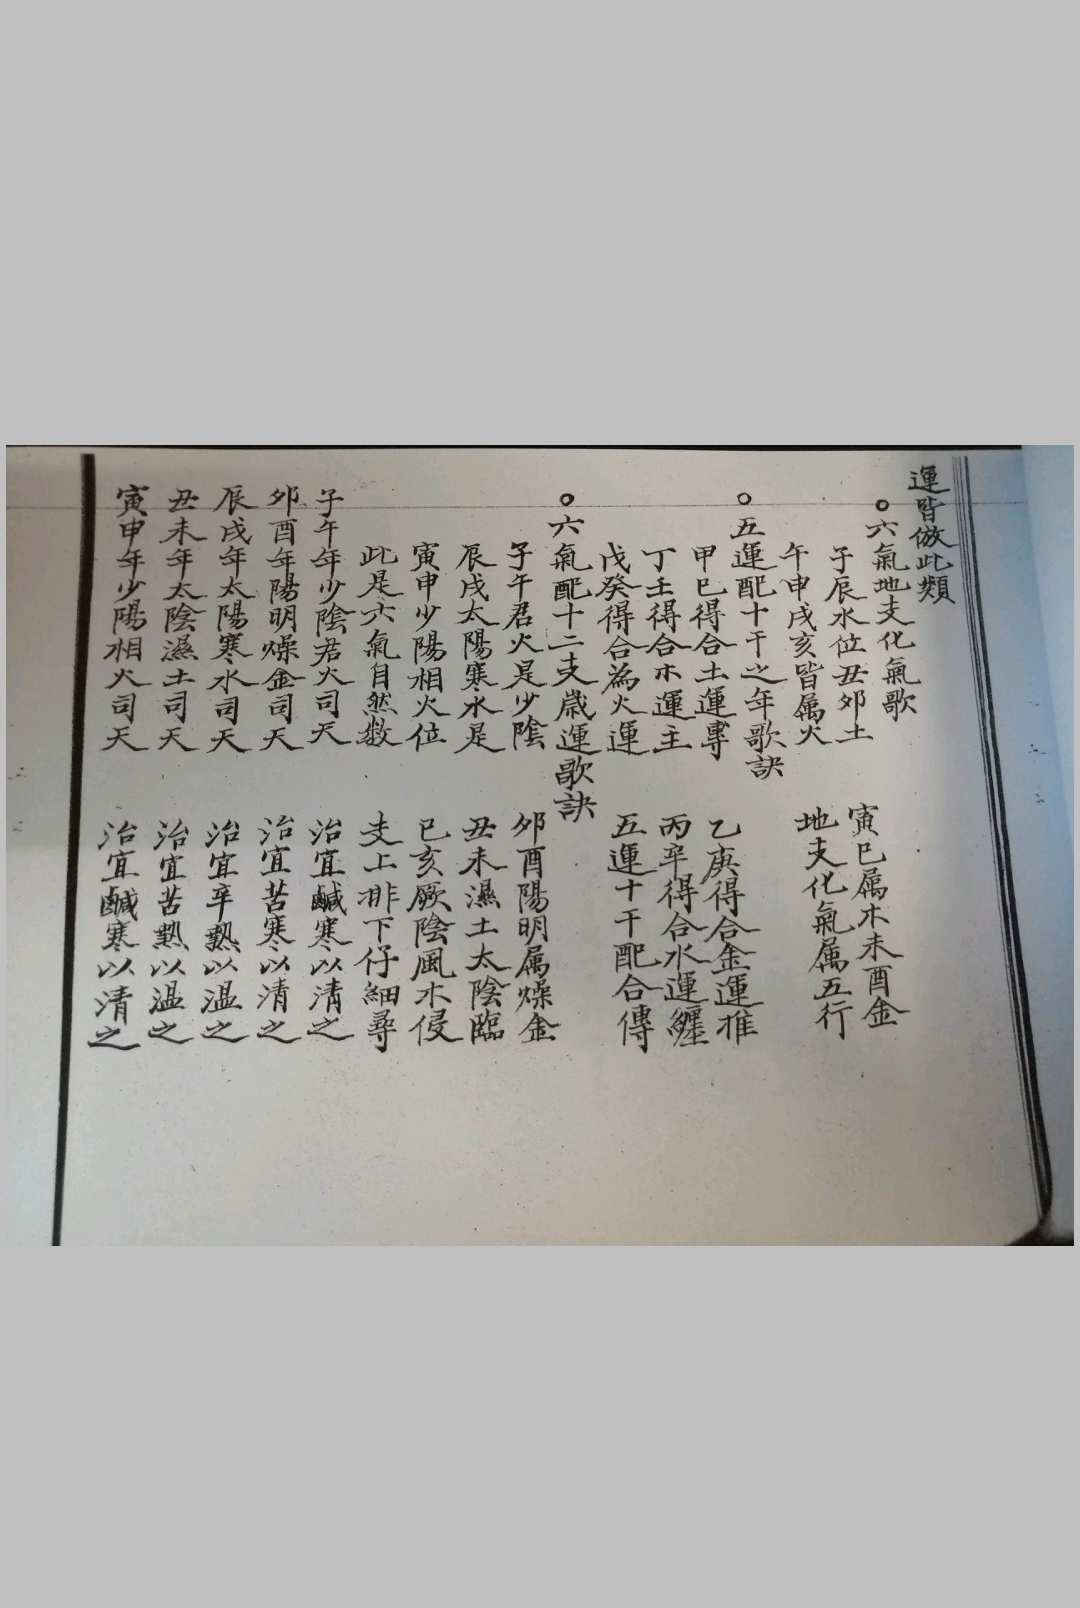 運皆倣此類
○六氣地支化氣歌
子辰水位丑夘土　寅巳属木未酉金
午申戌亥皆属火　地支化氣属五行
○五運配十干之年歌訣
甲巳得合土運專　乙庚得合金運推
丁壬得合木運主　丙辛得合水運纏
戊癸得合為火運　五運十干配合傳
○六氣配十二支歲運歌訣
子午君火是少陰　夘酉陽明属燥金
辰戌太陽寒水是　丑未濕土太陰臨
寅申少陽相火位　巳亥厥陰風木侵
此是六氣自然數　支上排下仔細尋
子午年少陰君火司天　治宜鹹寒以清之
夘酉年陽明燥金司天　治宜苦寒以清之
辰戌年太陽寒水司天　治宜辛熱以温之
丑未年太陰濕土司天　治宜苦熱以温之
寅申年少陽相火司天　治宜鹹寒以清之